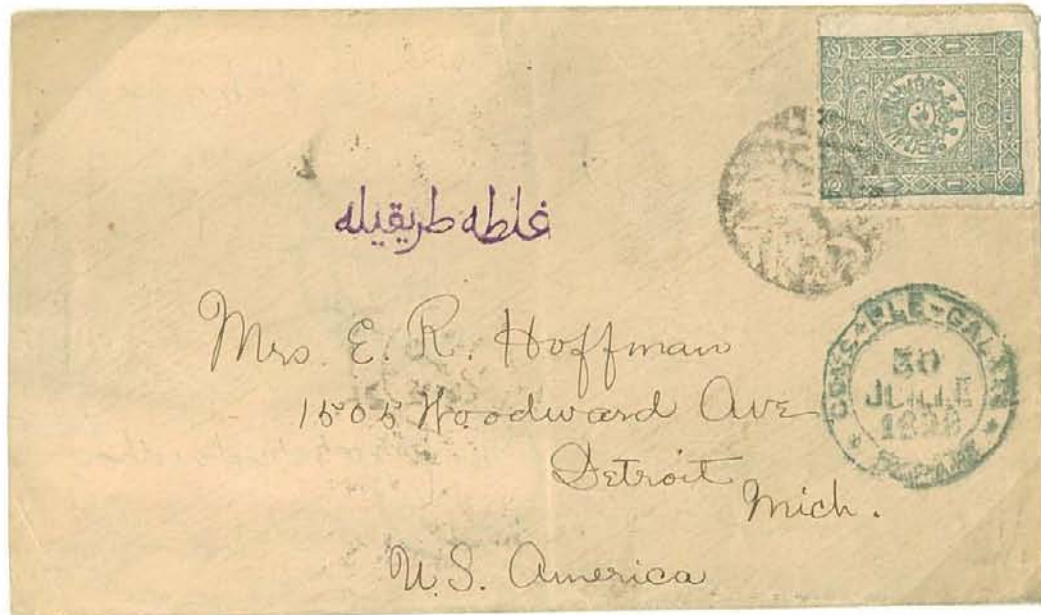 غلطه طريقيله
Mrs. E. R. Hoffman
1505 Woodward Ave
Detroit
Mich.
U.S. America
CONS-PLE-GALATA
30
JUILLE